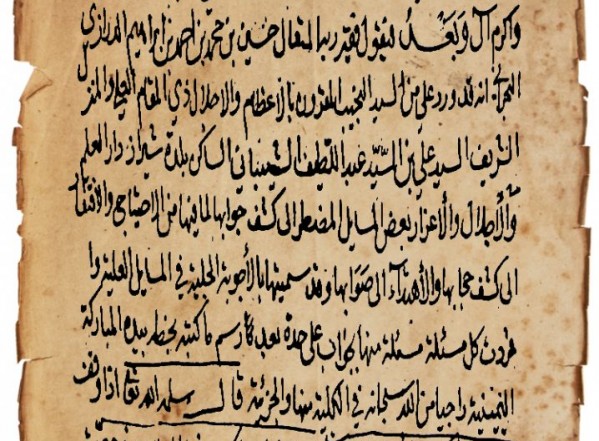 واكرم آل وبعدُ فيقول فقير ربه المتعال حسين بن محمد بن احمد بن ابراهيم الدرازي
البحراني انه قد ورد علي من السيد النجيب المقرون بالاعظام والاجلال ذي المقام العلي والمنزل
الشريف السيد علي بن السيّد عبد اللطيف الساكن بلدة شيراز دار العلم
والأجلال والأعزاز بعض المسايل المضطر الى كشف جوابها لما فيها من الاحتياج والافتقار
الى كشف حجابها والأهتدآء الى صوابها وقد سميتها بالأجوبة الجلية في المسايل العلية وا
فردت كل مسئلة مسئلة منها بجواب على حدة بعد رسم ما كتبه بخطه بيده المباركة
اليمينية راجيا من الله سبحانه في الكلية منها والجزئية قال سلمه الله تعا اذا وقف